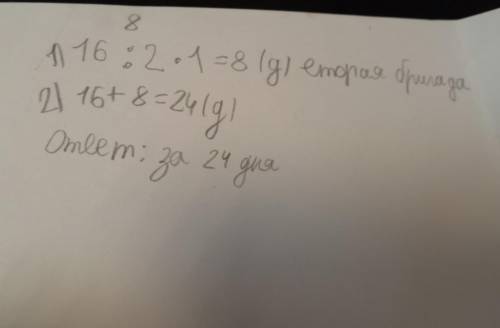 8
1) 16 : 2 · 1 = 8 (д) вторая бригада
2) 16 + 8 = 24 (д)
Ответ: за 24 дня